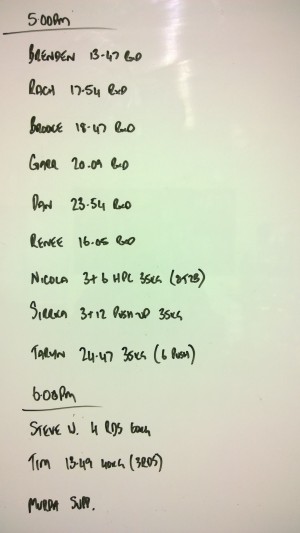 5:00pm
BRENDEN 13-47 RxD
RACH 17-54 RxD
BROOKE 18-47 RxD
GARR 20.09 RxD
DAN 23-54 RxD
RENEE 16.05 RxD
NICOLA 3+6 HPC 35KG (2T2B)
SIRRKA 3+12 PUSH-UP 35KG
TARYN 24-47 35KG (6 PUSH)
6:00pm
STEVE V. 4 RDS 60KG
TIM 13-49 40KG (3RDS)
MURDA SUPP.